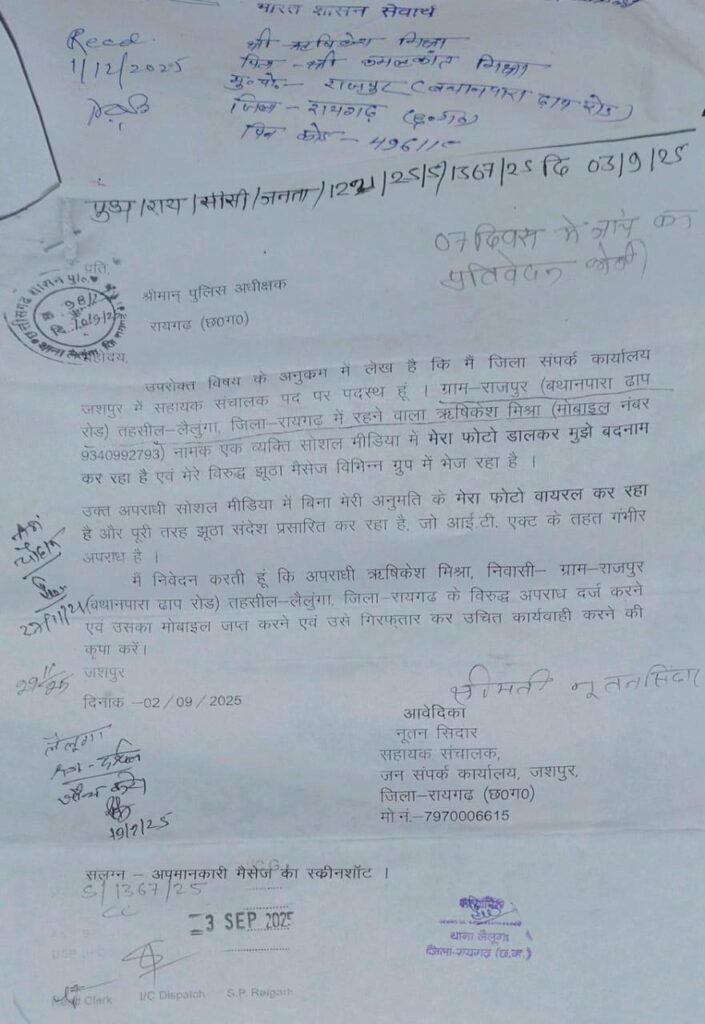 भारत शासन सेवार्थ
Recd.
1/12/2025
श्री ऋषिकेश मिश्रा
पिता - श्री कमलकांत मिश्रा
मु0पो0- राजपुर (बथानपारा ढाप रोड)
जिला - रायगढ़ (छ0ग0)
पिन कोड -
पुअ/राय/सीसी/जनता/ /25/S/1367/25 दि 03/9/25
07 दिवस में जांच कर
प्रतिवेदन
प्रति,
श्रीमान् पुलिस अधीक्षक
रायगढ़ (छ0ग0)
महोदय,
उपरोक्त विषय के अनुकम में लेख है कि मैं जिला संपर्क कार्यालय
जशपुर में सहायक संचालक पद पर पदस्थ हूं । ग्राम-राजपुर (बथानपारा ढाप
रोड) तहसील-लैलुंगा, जिला-रायगढ़ में रहने वाला ऋषिकेश मिश्रा (मोबाइल नंबर
9340992793) नामक एक व्यक्ति सोशल मीडिया में मेरा फोटो डालकर मुझे बदनाम
कर रहा है एवं मेरे विरुद्ध झूठा मैसेज विभिन्न ग्रुप में भेज रहा है ।
उक्त अपराधी सोशल मीडिया में बिना मेरी अनुमति के मेरा फोटो वायरल कर रहा
है और पूरी तरह झूठा संदेश प्रसारित कर रहा है, जो आई.टी. एक्ट के तहत गंभीर
अपराध है ।
मैं निवेदन करती हूं कि अपराधी ऋषिकेश मिश्रा, निवासी- ग्राम-राजपुर
(बथानपारा ढाप रोड) तहसील-लैलुंगा, जिला-रायगढ़ के विरुद्ध अपराध दर्ज करने
एवं उसका मोबाइल जप्त करने एवं उसे गिरफ्तार कर उचित कार्यवाही करने की
कृपा करें।
जशपुर
दिनाक -02/09/2025
श्रीमती नूतन सिदार
आवेदिका
नूतन सिदार
सहायक संचालक,
जन संपर्क कार्यालय, जशपुर,
जिला-रायगढ़ (छ0ग0)
मो नं.-7970006615
लैलूंगा
सलग्न - अपमानकारी मैसेज का स्कीनशॉट ।
S/1367/25
CC
3 SEP 2025
थाना लैलूंगा
जिला-रायगढ़ (छ.ग.)
Clerk I/C Dispatch S.P. Raigarh